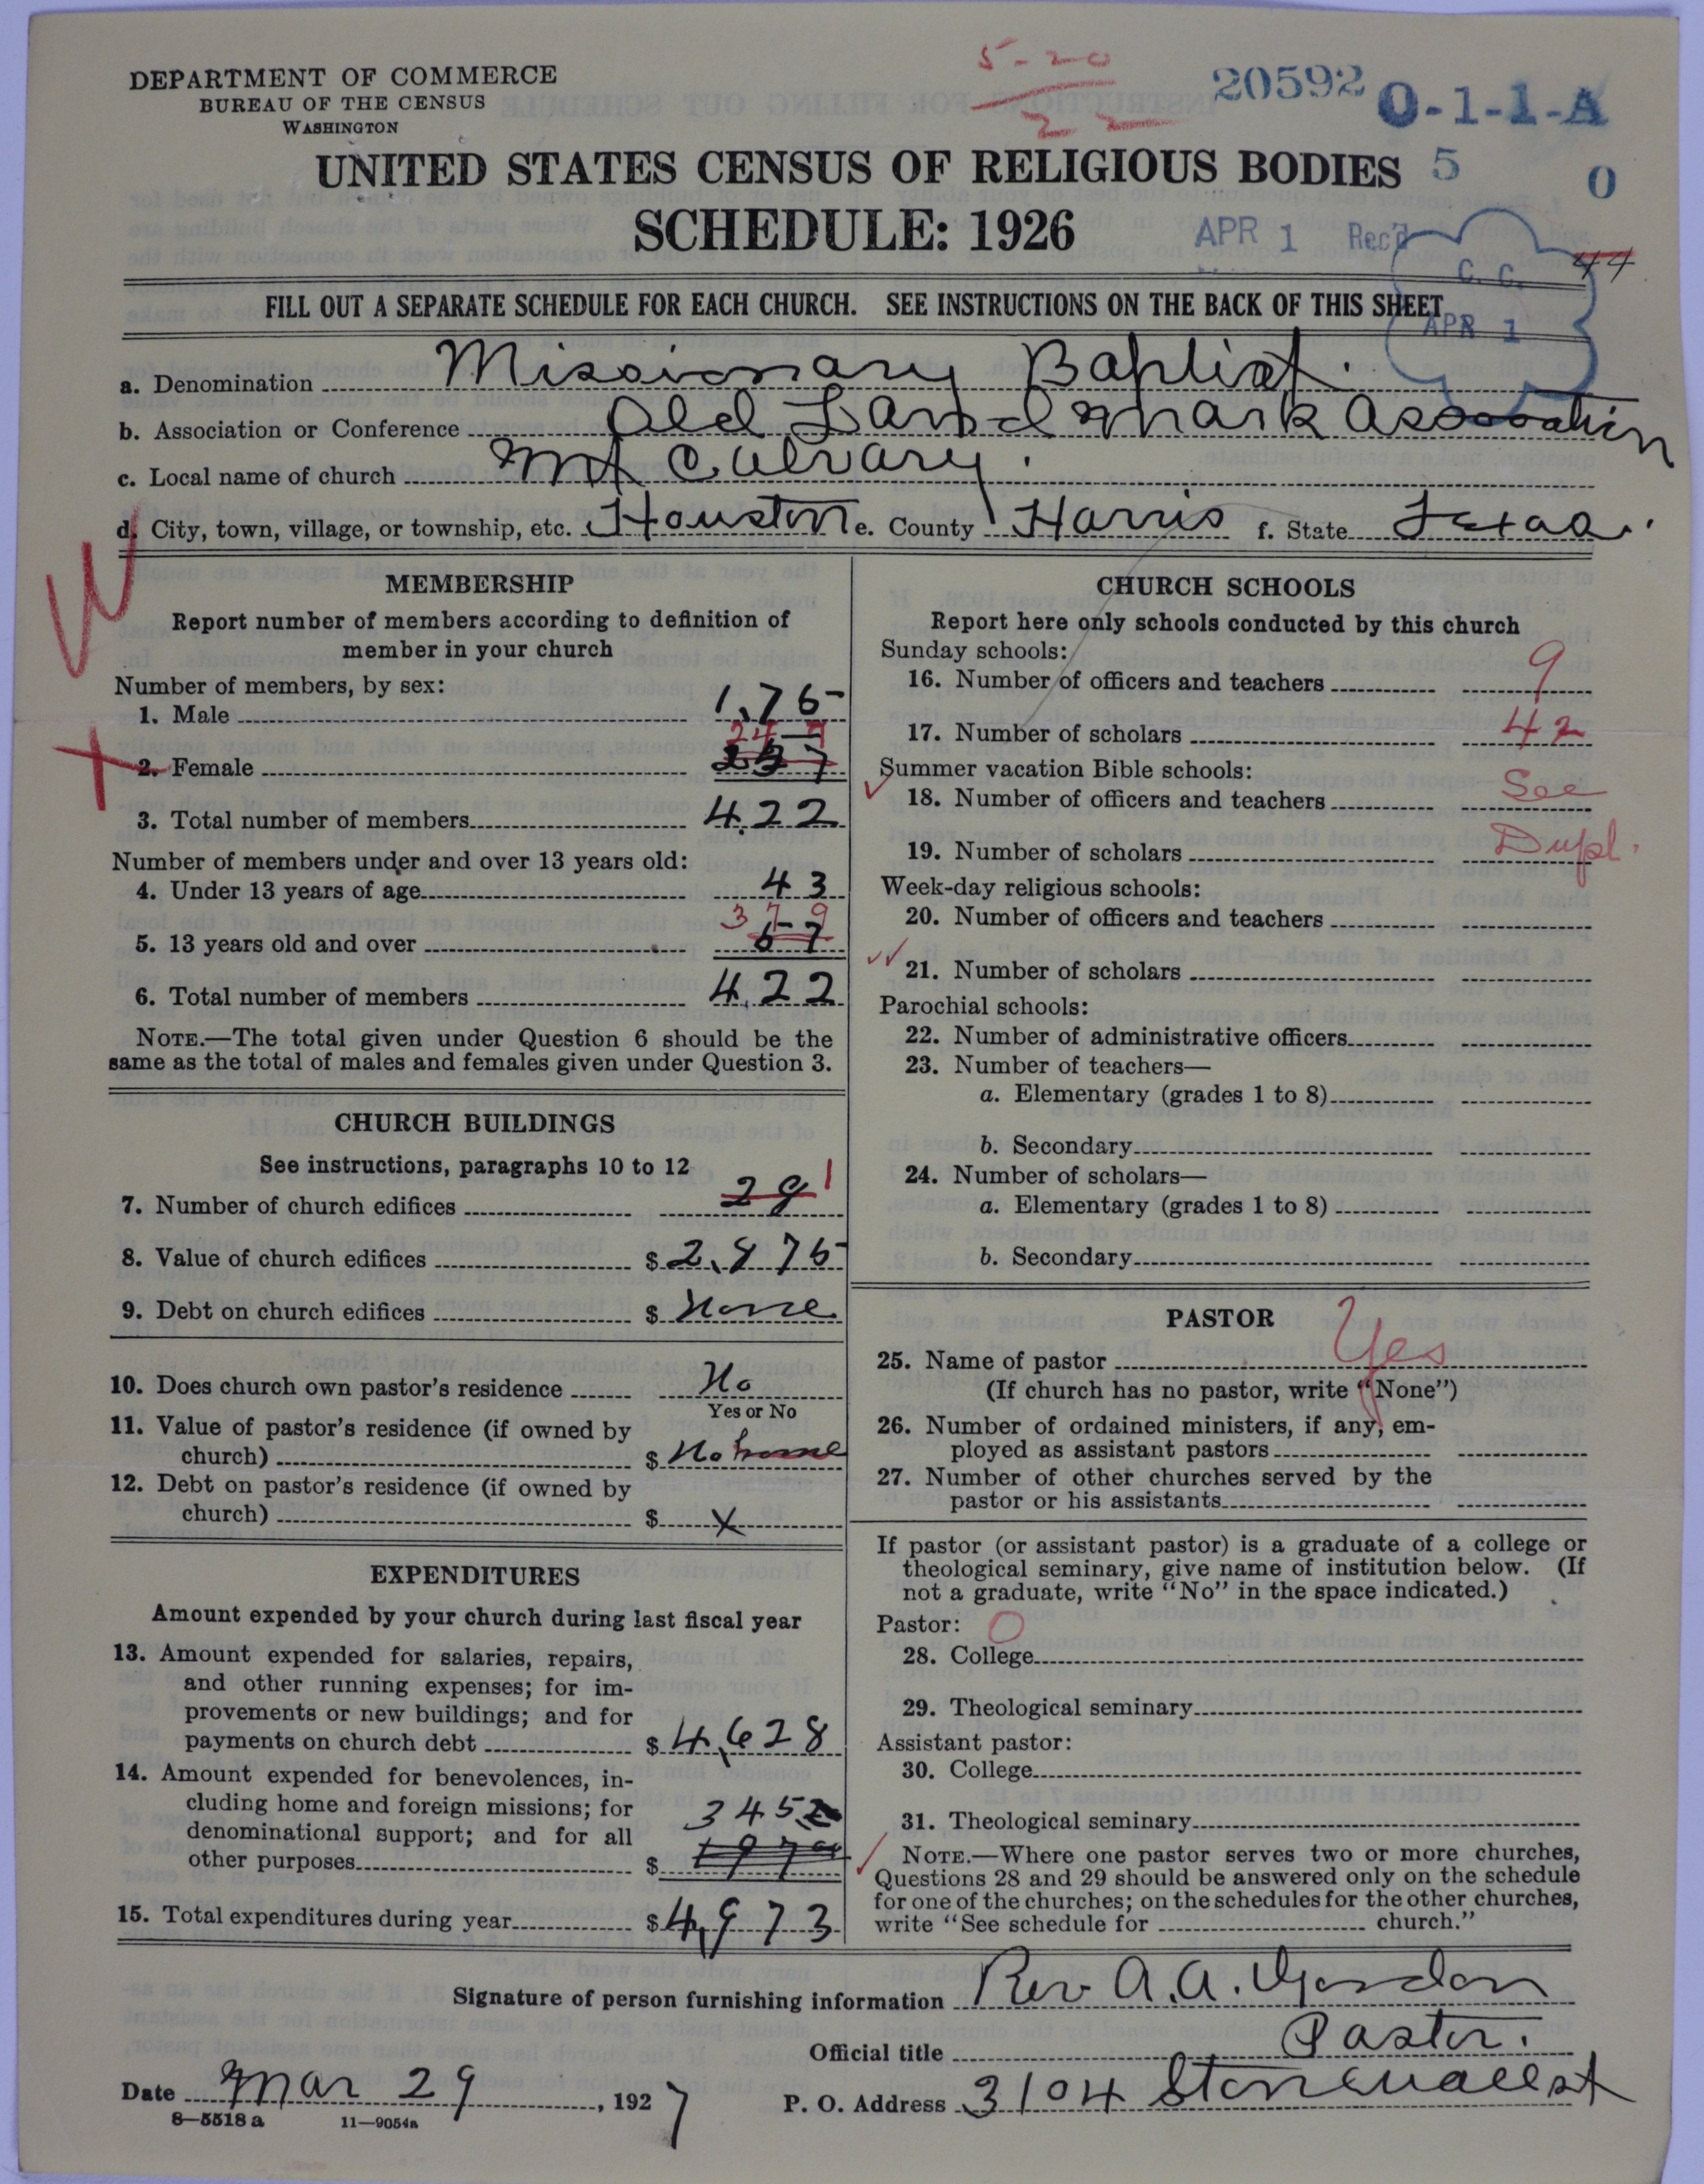 DEPARTMENT OF COMMERCE
BUREAU OF THE CENSUS
WASHINGTON
5-20
22
20592
O-1-1-A
UNITED STATES CENSUS OF RELIGIOUS BODIES
5
0
SCHEDULE: 1926
APR 1 Rec'd
C. C.
44
APR 1
FILL OUT A SEPARATE SCHEDULE FOR EACH CHURCH. SEE INSTRUCTIONS ON THE BACK OF THIS SHEET
a. Denomination Missionary Baptist.
b. Association or Conference Old Land mark Association
c. Local name of church Mt Calvary.
d. City, town, village, or township, etc. Houston e. County Harris f. State Texas.
MEMBERSHIP
Report number of members according to definition of
member in your church
Number of members, by sex:
1. Male 1,75
2. Female 247
3. Total number of members 422
Number of members under and over 13 years old:
4. Under 13 years of age 43
379
5. 13 years old and over 57
6. Total number of members 4,22
NOTE.—The total given under Question 6 should be the
same as the total of males and females given under Question 3.
CHURCH BUILDINGS
See instructions, paragraphs 10 to 12
7. Number of church edifices 29 1
8. Value of church edifices $ 2,875
9. Debt on church edifices $ None
10. Does church own pastor's residence No
Yes or No
11. Value of pastor's residence (if owned by
church) $ No home
12. Debt on pastor's residence (if owned by
church) $ X
EXPENDITURES
Amount expended by your church during last fiscal year
13. Amount expended for salaries, repairs,
and other running expenses; for im-
provements or new buildings; and for
payments on church debt $ 4,628
14. Amount expended for benevolences, in-
cluding home and foreign missions; for
denominational support; and for all
other purposes $ 345
15. Total expenditures during year $ 4,973
CHURCH SCHOOLS
Report here only schools conducted by this church
Sunday schools:
16. Number of officers and teachers 9
17. Number of scholars 42
Summer vacation Bible schools:
18. Number of officers and teachers See
19. Number of scholars Dupl.
Week-day religious schools:
20. Number of officers and teachers
21. Number of scholars
Parochial schools:
22. Number of administrative officers
23. Number of teachers—
a. Elementary (grades 1 to 8)
b. Secondary
24. Number of scholars—
a. Elementary (grades 1 to 8)
b. Secondary
PASTOR
25. Name of pastor Yes
(If church has no pastor, write "None")
26. Number of ordained ministers, if any, em-
ployed as assistant pastors
27. Number of other churches served by the
pastor or his assistants
If pastor (or assistant pastor) is a graduate of a college or
theological seminary, give name of institution below. (If
not a graduate, write "No" in the space indicated.)
Pastor: 0
28. College
29. Theological seminary
Assistant pastor:
30. College
31. Theological seminary
NOTE.—Where one pastor serves two or more churches,
Questions 28 and 29 should be answered only on the schedule
for one of the churches; on the schedules for the other churches,
write "See schedule for church."
Signature of person furnishing information Rev A. A. Gordon
Official title Pastor.
Date Mar 29, 1927 P. O. Address 3104 Stonewall st
8—5518 a 11—9054a